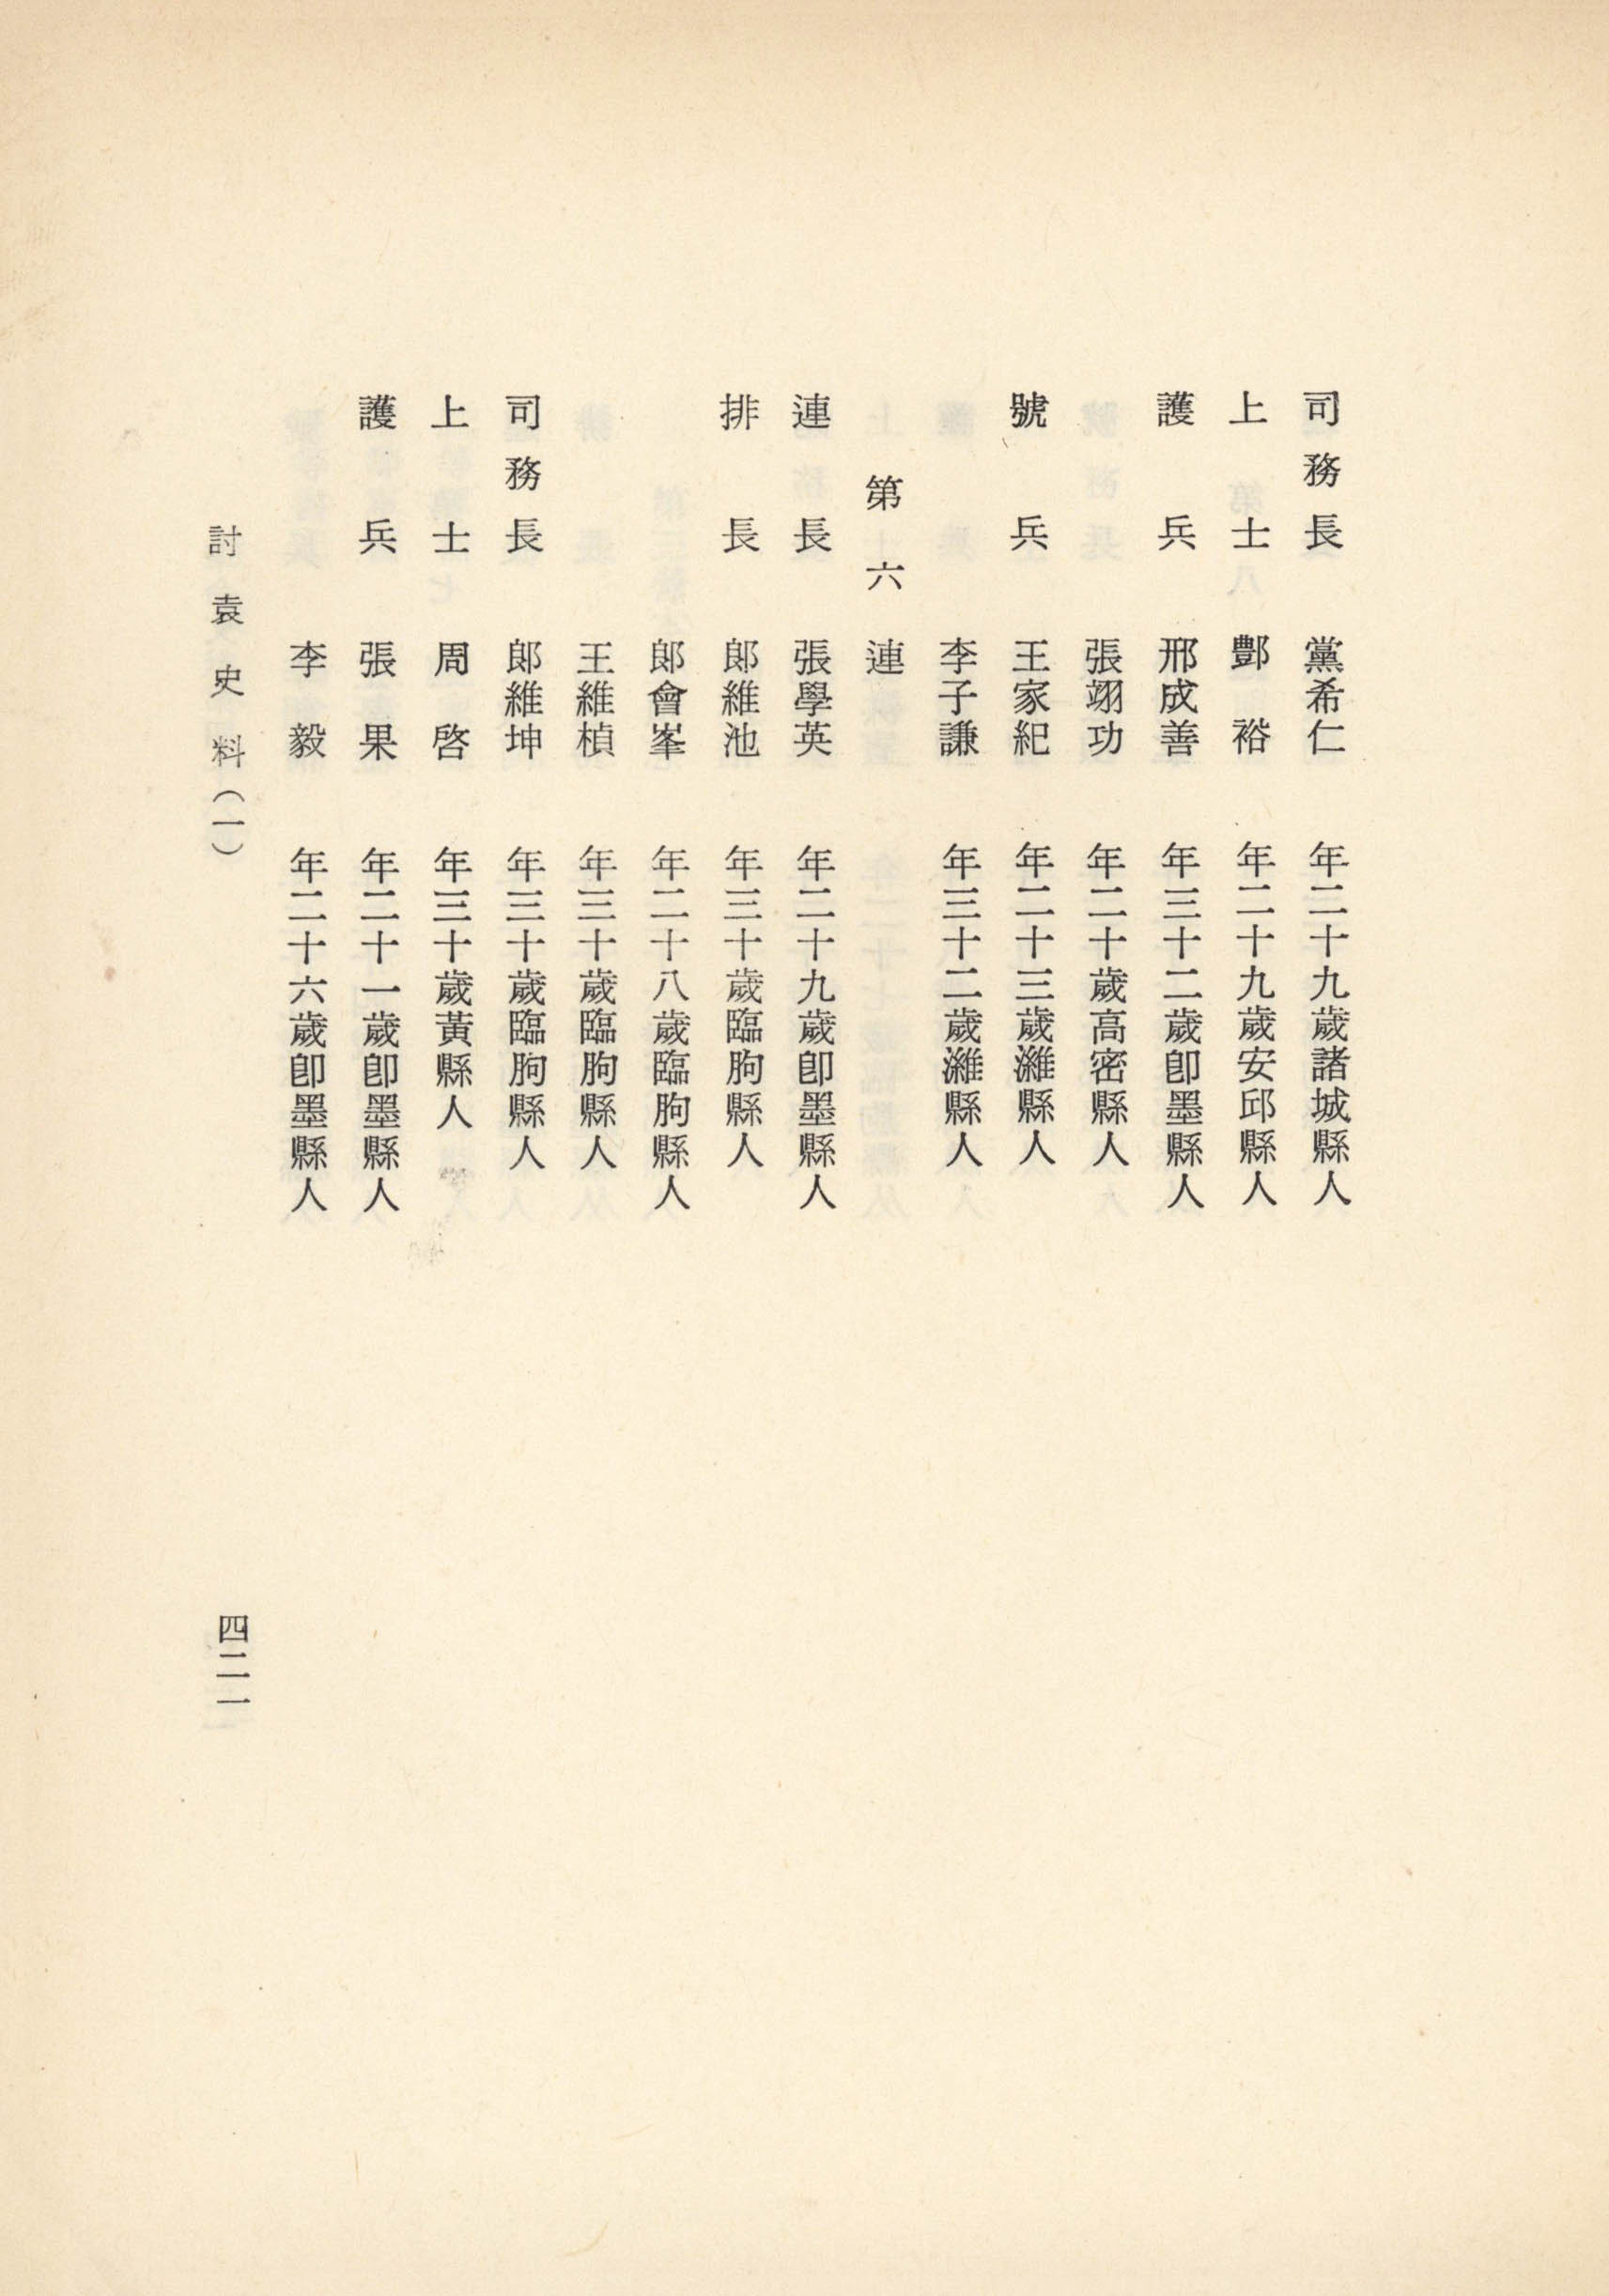 司務長 黨希仁 年二十九歲諸城縣人
上士 酆裕 年二十九歲安邱縣人
護兵 邢成善 年三十二歲卽墨縣人
張翊功 年二十歲高密縣人
號兵 王家紀 年二十三歲濰縣人
李子謙 年三十二歲濰縣人
第六連
連長 張學英 年二十九歲卽墨縣人
排長 郞維池 年三十歲臨朐縣人
郞會峯 年二十八歲臨朐縣人
王維楨 年三十歲臨朐縣人
司務長 郞維坤 年三十歲臨朐縣人
上士 周啓 年三十歲黃縣人
護兵 張果 年二十一歲卽墨縣人
李毅 年二十六歲卽墨縣人
討袁史料(一)
四二一